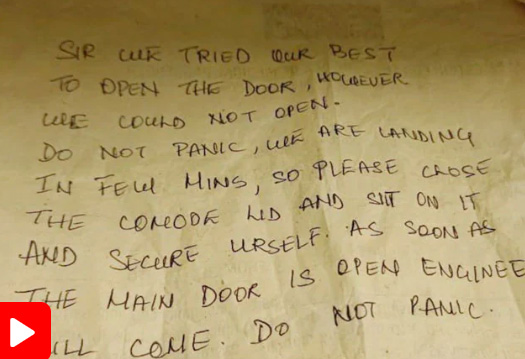 SIR WE TRIED OUR BEST
TO OPEN THE DOOR, HOWEVER
WE COULD NOT OPEN.
DO NOT PANIC, WE ARE LANDING
IN FEW MINS, SO PLEASE CLOSE
THE COMODE LID AND SIT ON IT
AND SECURE URSELF. AS SOON AS
THE MAIN DOOR IS OPEN ENGINEE
ILL COME. DO NOT PANIC.